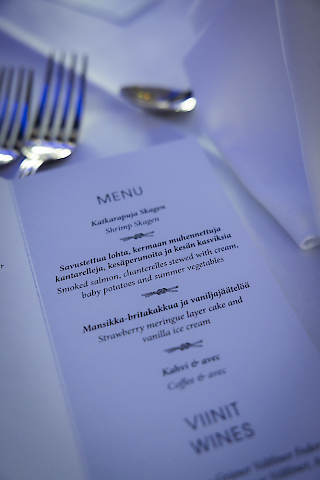 MENU
Katkarapuja Skagen
Shrimp Skagen
Savustettua lohta, kermaan muhennettuja
kantarelleja, kesäperunoita ja kesän kasviksia
Smoked salmon, chanterelles stewed with cream,
baby potatoes and summer vegetables
Mansikka-britakakkua ja vaniljajäätelöä
Strawberry meringue layer cake and
vanilla ice cream
Kahvi & avec
Coffee & avec
VIINIT
WINES